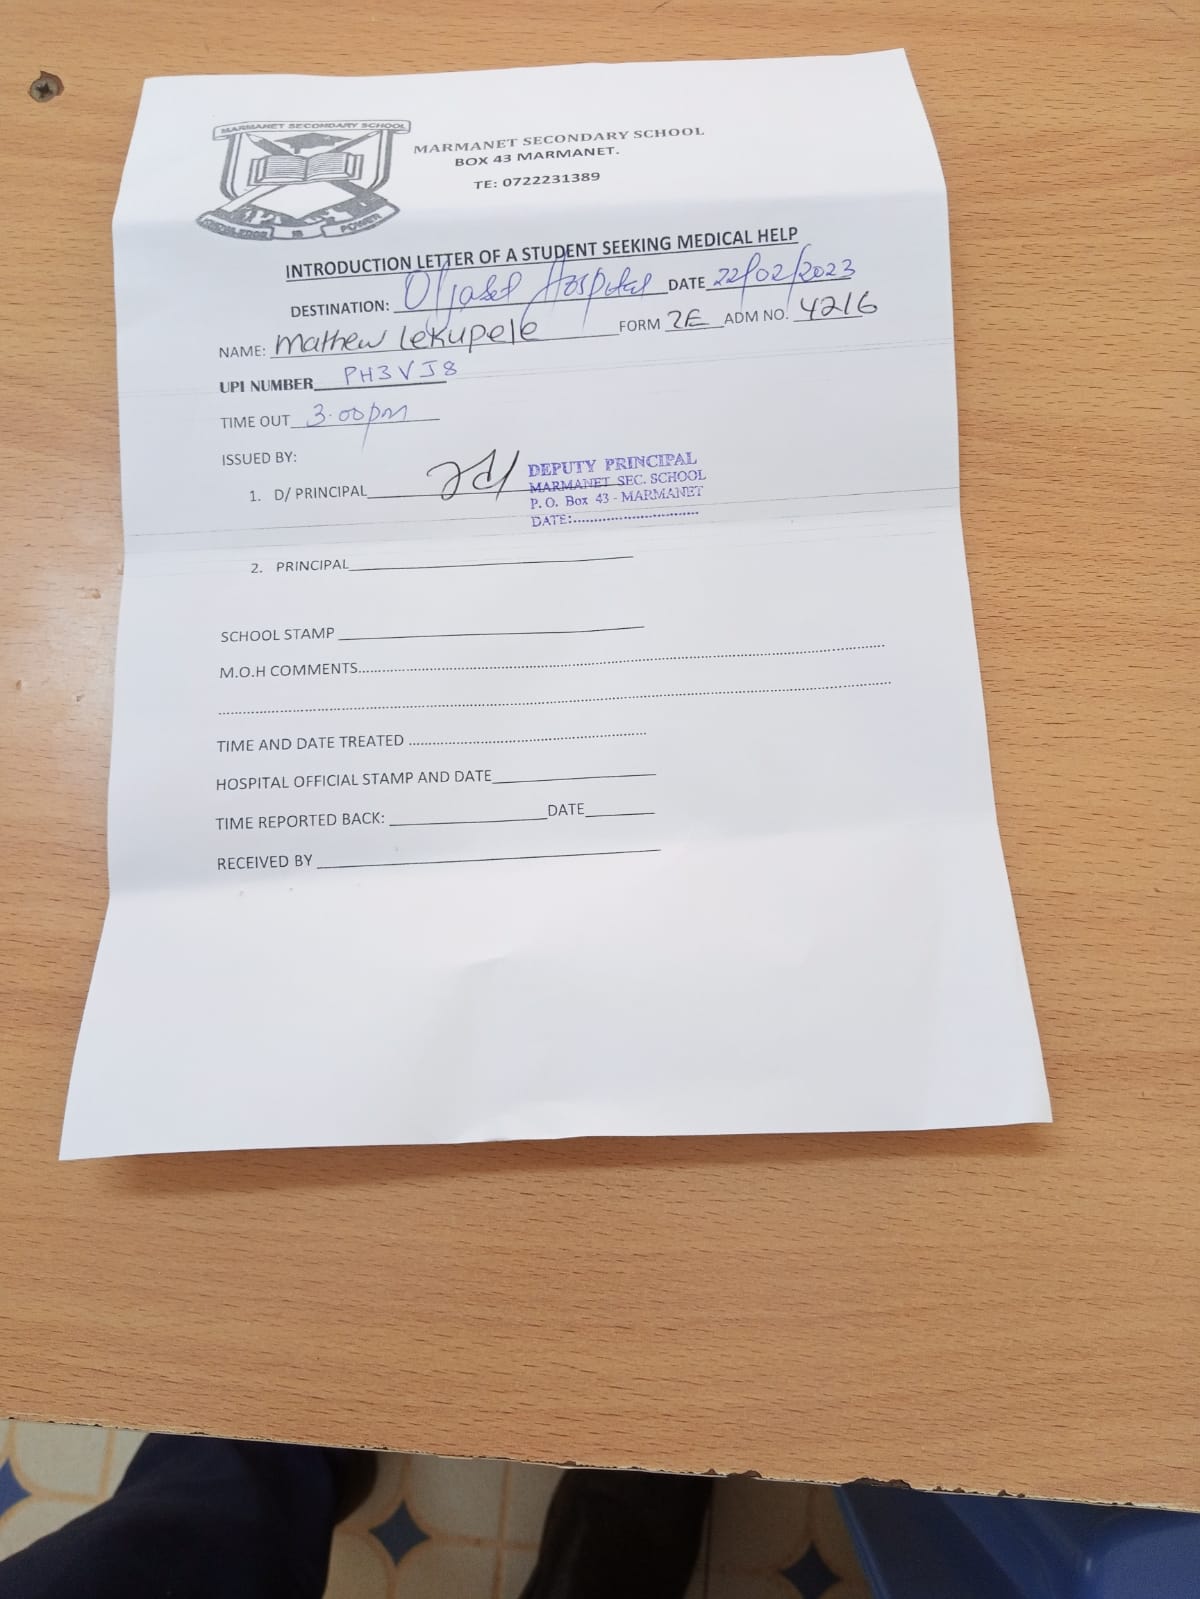 MARMANET SECONDARY SCHOOL
KNOWLEDGE IS POWER
MARMANET SECONDARY SCHOOL
BOX 43 MARMANET.
TE: 0722231389
INTRODUCTION LETTER OF A STUDENT SEEKING MEDICAL HELP
DESTINATION: Oljabet Hospital DATE 22/02/2023
NAME: Mathew Lekupele FORM 2E ADM NO. 4216
UPI NUMBER PH3VJ8
TIME OUT 3.00pm
ISSUED BY:
1. D/ PRINCIPAL
DEPUTY PRINCIPAL
MARMANET SEC. SCHOOL
P. O. Box 43 - MARMANET
DATE:
2. PRINCIPAL
SCHOOL STAMP
M.O.H COMMENTS
TIME AND DATE TREATED
HOSPITAL OFFICIAL STAMP AND DATE
TIME REPORTED BACK: DATE
RECEIVED BY